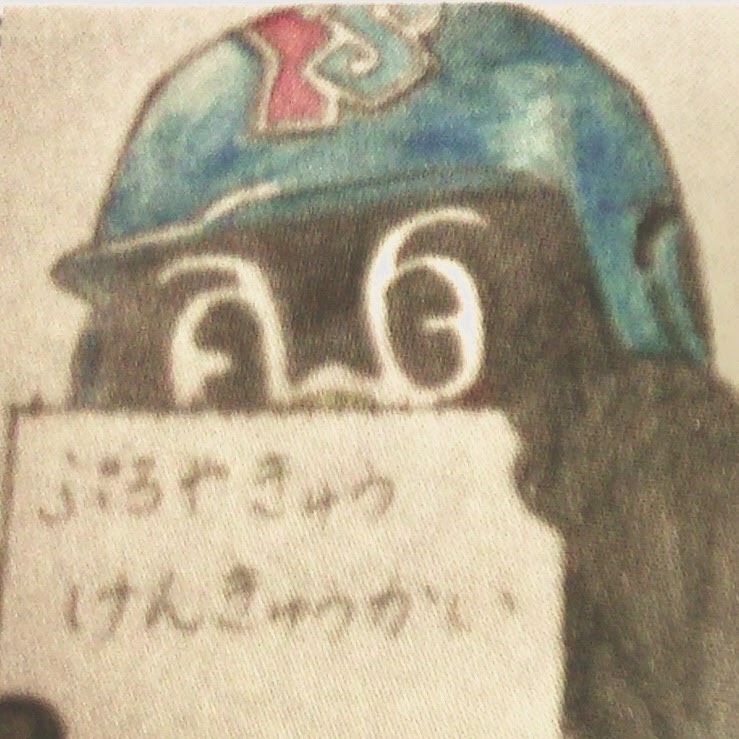 YS
ぷろやきゅう
けんきゅうかい